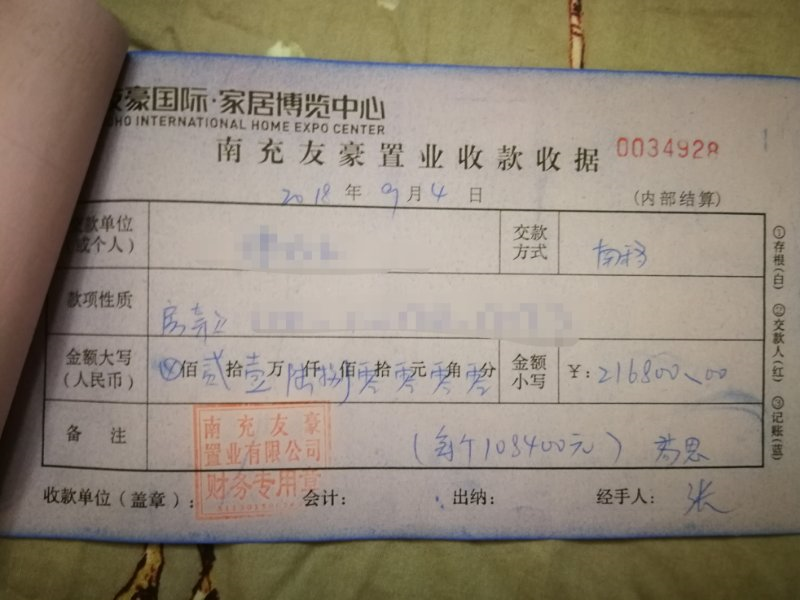 友豪国际·家居博览中心
HO INTERNATIONAL HOME EXPO CENTER
南充友豪置业收款收据 0034928
2018年9月4日 (内部结算)
交款单位
(或个人)
交款
方式
款项性质 房款
金额大写
(人民币)
佰贰拾壹万陆仟捌佰零拾零元零角零分
金额
小写
¥:216800.00
备注 (每个108400元)
南充友豪
置业有限公司
财务专用章
收款单位(盖章): 会计: 出纳: 经手人: 张
①存根(白) ②交款人(红) ③记账(蓝)